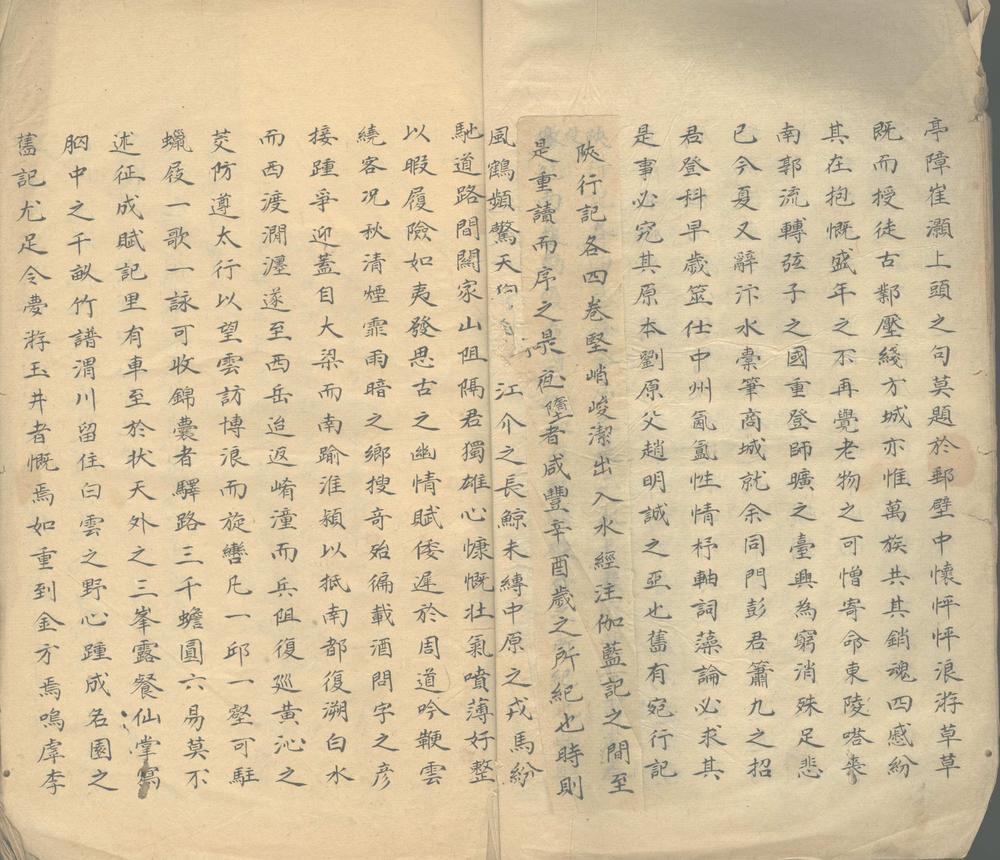 亭障崔灝上頭之句莫題於郵壁中懷怦怦浪游草草
既而授徒古鄴壓綫方城亦惟萬族共其銷魂四感紛
其在抱慨盛年之不再覺老物之可憎寄命東陵嗒喪
南郭流轉弦子之國重登師曠之臺興為窮消殊足悲
已今夏又辭汴水橐筆商城就余同門彭君簫九之招
君登科早歲筮仕中州氤氳性情杼軸詞藻論必求其
是事必究其原本劉原父趙明誠之亞也舊有宛行記
陝行記各四卷堅峭峻潔出入水經注伽藍記之間至
是重讀而序之是讱墮者咸豐辛酉歲之所紀也時則
風鶴頻驚天 江介之長鯨未縛中原之戎馬紛
馳道路間關家山阻隔君獨雄心慷慨壯氣噴薄好整
以暇履險如夷發思古之幽情賦倭遲於周道吟鞭雲
繞客況秋清煙霏雨暗之鄉搜奇殆徧載酒問字之彥
接踵爭迎蓋自大梁而南踰淮潁以抵南都復溯白水
而西渡澗瀍遂至西岳迨返崤潼而兵阻復廵黃沁之
茭防遵太行以望雲訪博浪而旋轡凡一邱一壑可駐
蠟屐一歌一詠可收錦囊者驛路三千蟾圓六易莫不
述征成賦記里有車至於狀天外之三峯露餐仙掌寫
胸中之千畝竹譜渭川留住白雲之野心踵成名園之
舊記尤足令夢游玉井者慨焉如重到金方焉嗚虖李